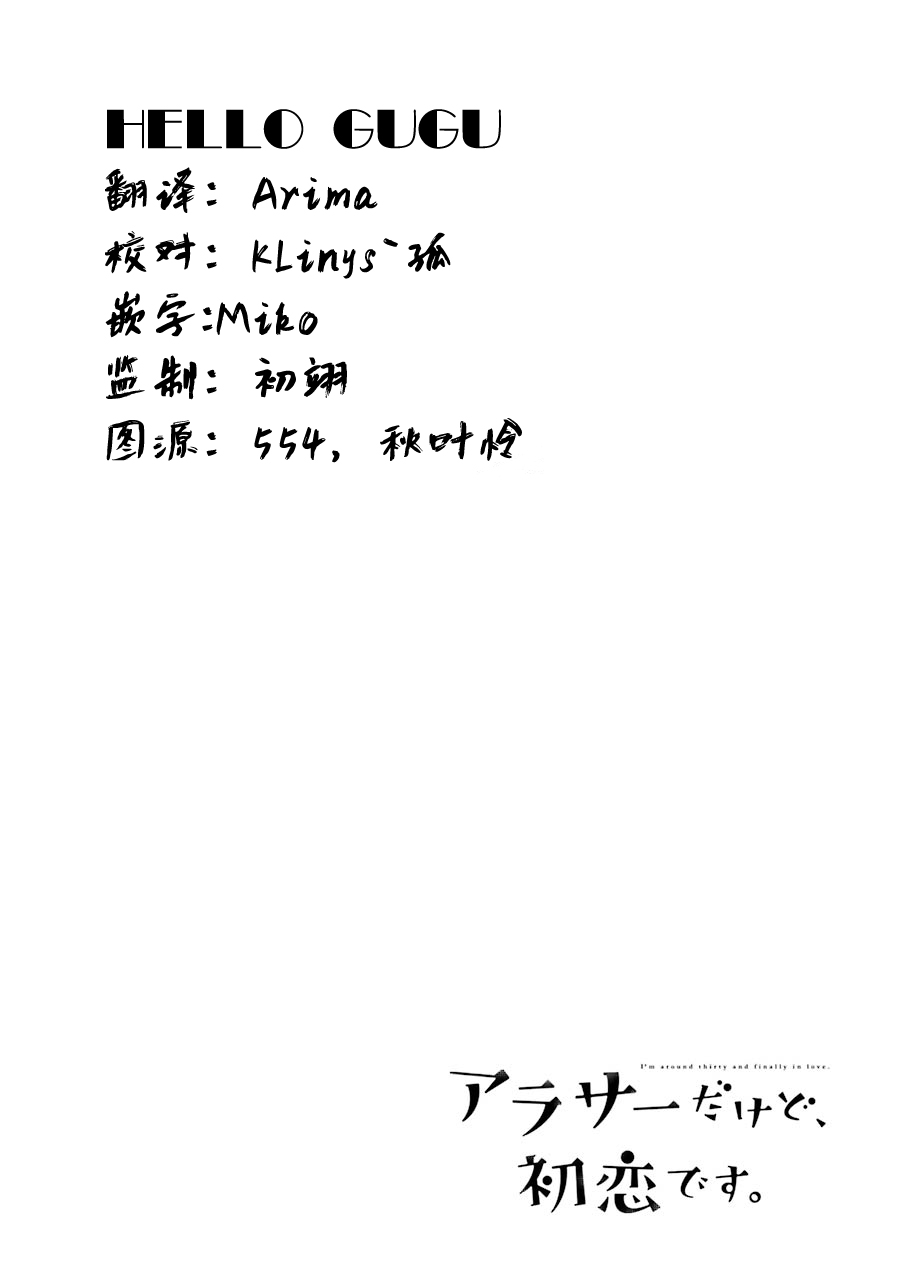 HELLO GUGU
翻译： Arima
校对： KLinys`孤
嵌字:Miko
监制： 初翊
图源： 554, 秋叶怜
I'm around thirty and finally in love.
アラサーだけど、
初恋です。